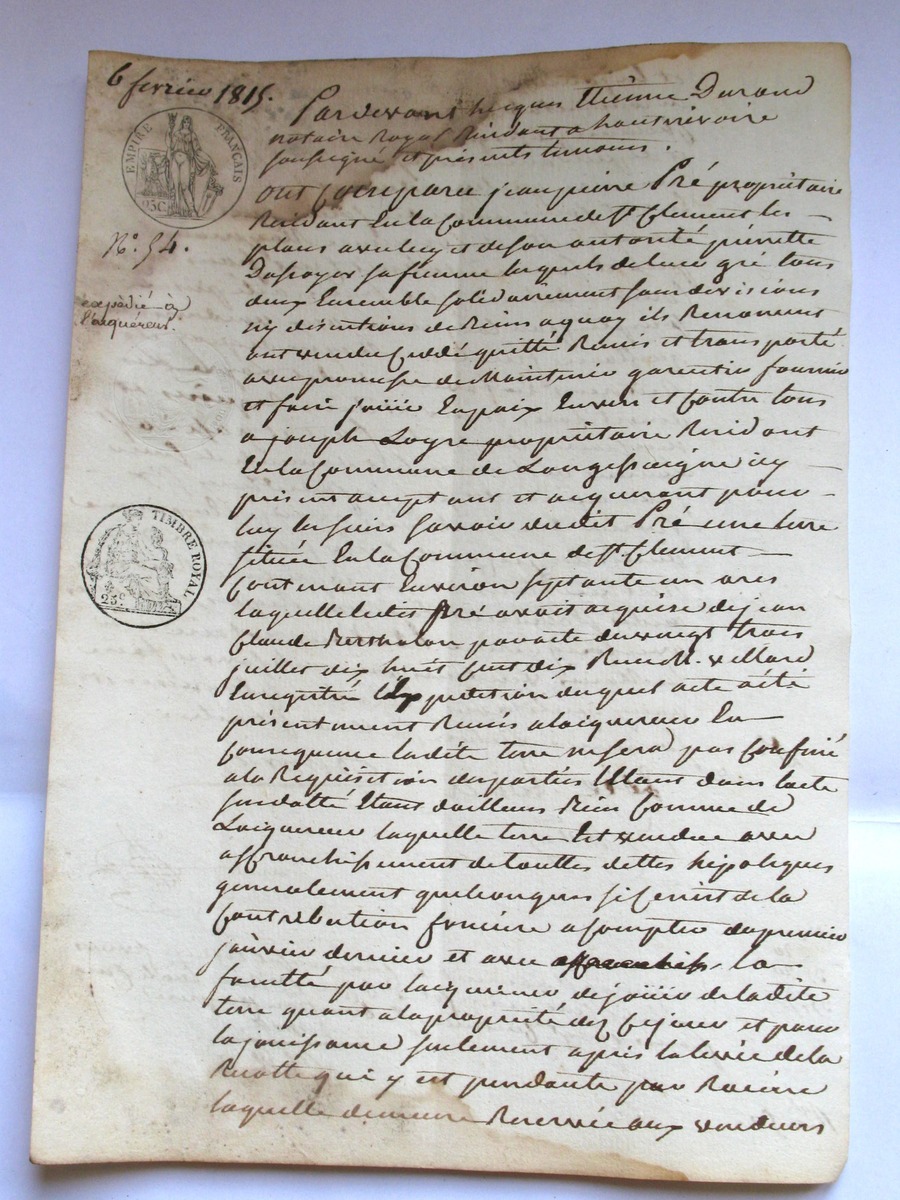 6 fevrier 1815.
EMPIRE FRANÇAIS
25C
N.° 54.
expédié à
l'acquéreur.
TIMBRE ROYAL
25C.
Pardevant Jacques Etiénne Durand
notaire Royal Residant a hauterivoire
soussigné et présents temoins.
ont Comparu jean pierre Pré propriétaire
Residant En la Commune de St Clement les
places avec luy et de son autorité pierrette
sa femme lesquels de leur gré tous
deux Ensemble solidairement sans divisions
ny discutions de Biens a quoy ils Renoncent
ont vendu Cuddé quitté Remis et transporté
avec promesse de Maintenir garentir fournir
et faire jouiir En paix Envers et Contre tous
a joseph Logre propriétaire Residant
En la Commune de Longessaigne icy
présent acceptant et acquerant pour
luy les siens savoir dudit Pré une terre
située En la Commune de St Clement
Contenant Environ septante un ares
laquelle ledit Pré avait acquise de jean
Claude Bertholon par acte du vingt trois
juillet dix huit Cent dix Reçu M.
Enregistré Expedition duquel acte a été
présentement Remis a lacquereur En
Consequence ladite terre ne sera pas Confiné
a la Requisition des parties Etant dans lacte
susdatté Etant dailleurs Bien Connue de
Lacquereur laquelle terre Est vendue avec
affranchissement de touttes dettes hipoteques
generalement quelconques si Ce nest de la
Contribution fonciére a Compter du premier
janvier dernier et avec la
faculté par lacquereur de jouiir de ladite
terre quant a la propriété dez Ce jour et pour
la jouissance seulement aprés la levée de la
Recolte qui y est pendante par Racine
laquelle demeure Reservée aux vendeurs